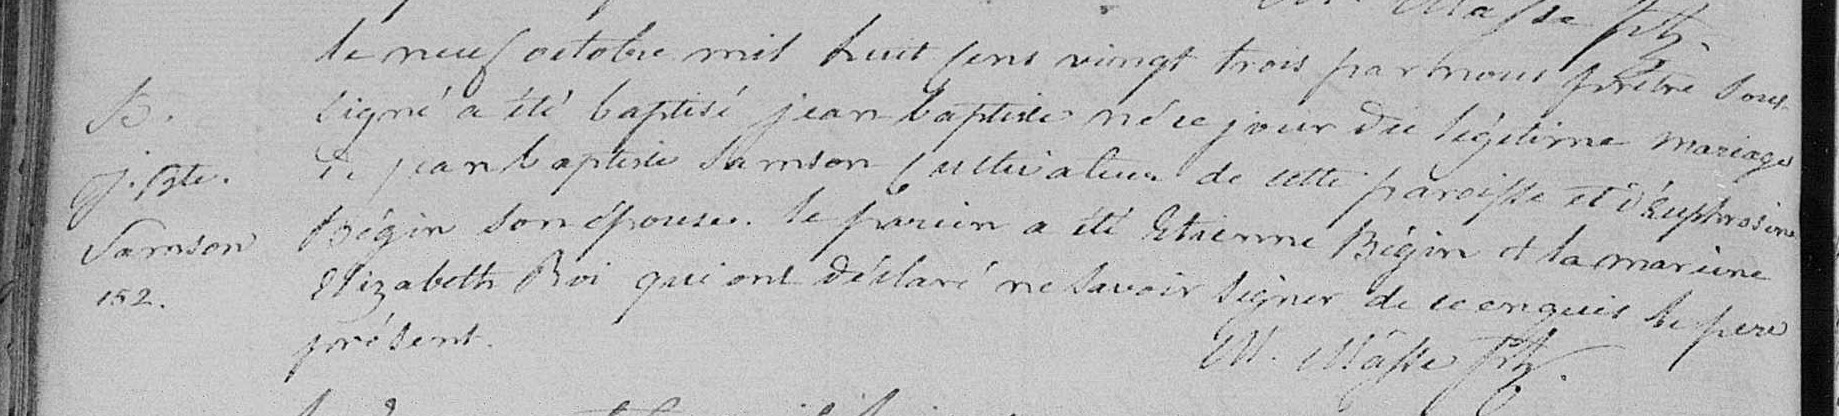 M. Masse Ptr.
le neuf octobre mil huit cens vingt trois par nous prêtre sous
signé a été baptisé jean baptiste né ce jour du légitime mariage
B.
de jean baptiste Samson Cultivateur de cette paroisse et d'Euphrosine
j. Bte.
Bégin son épouse. le parein a été Etienne Bégin et la mareine
Samson
Elizabeth Roi qui ont déclaré ne savoir signer de ce enquis le pere
152.
présent.
M. Masse Ptr.